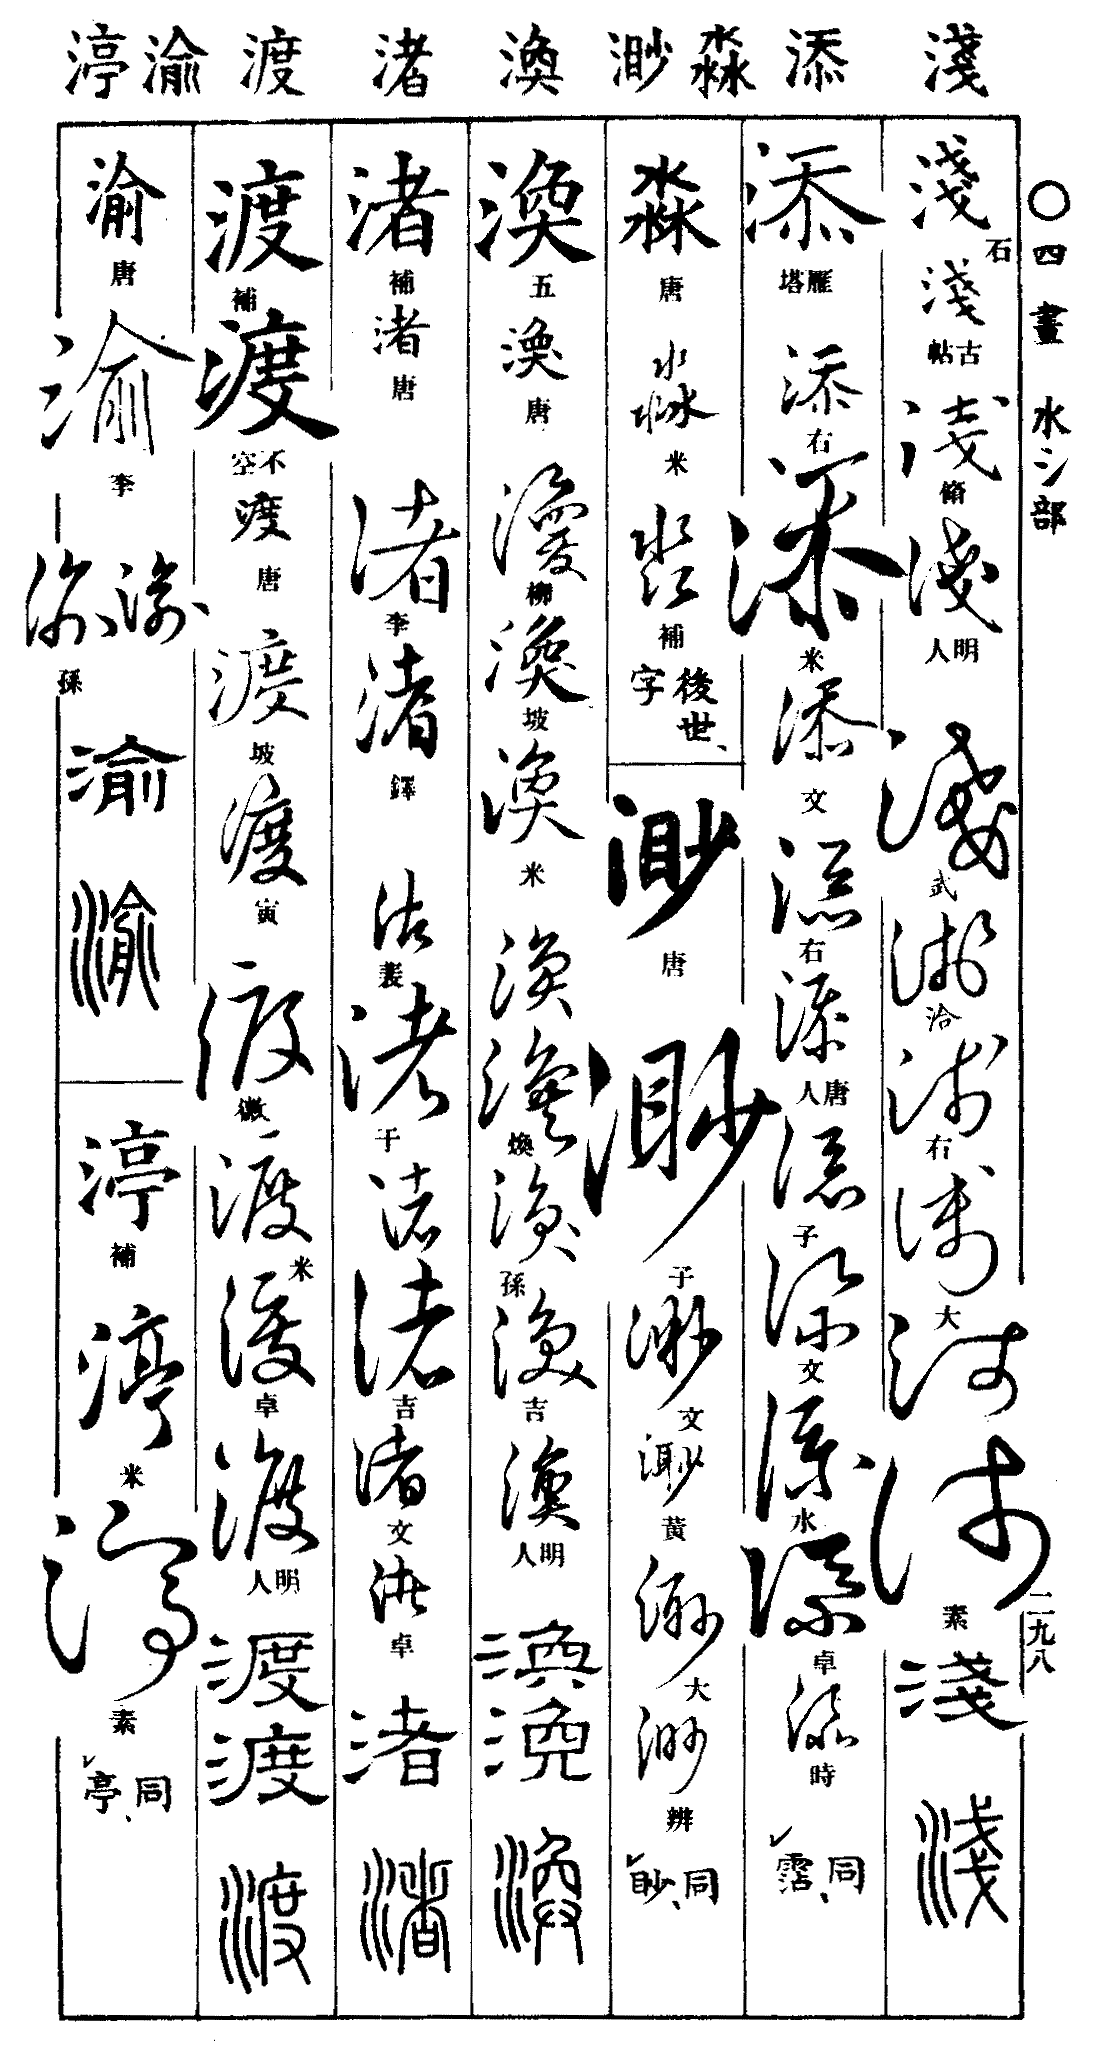 淺 添 淼 渺 渙 渚 渡 渝 渟
〇四畫 水氵部
二九八
淺 石
淺 古帖
淺 脩
淺 明人
淺 武
淺 洽
淺 右
淺 大
淺
淺 素
淺
淺
添 雁塔
添 右
添 米
添 文
添 右
添 唐人
添 子
添 文
添 水
添 卓
添 時
同霑、
淼 唐
淼 米
淼 補
後世、字
渺 唐
渺 子
渺 文
渺 黃
渺 大
渺 辨
同眇、
渙 五
渙 唐
渙 柳
渙 坡
渙 米
渙
渙 煥
渙 孫
渙 吉
渙 明人
渙
渙
渙
渚 補
渚 唐
渚 李
渚 鐸
渚 裴
渚 千
渚
渚 吉
渚 文
渚 卓
渚
渚
渡 補
渡 不空
渡 唐
渡 坡
渡 寅
渡 徽
渡 米
渡 卓
渡 明人
渡
渡
渡
渝 唐
渝 李
渝 渝 孫
渝
渝
渟 補
渟 米
渟 素
同亭、